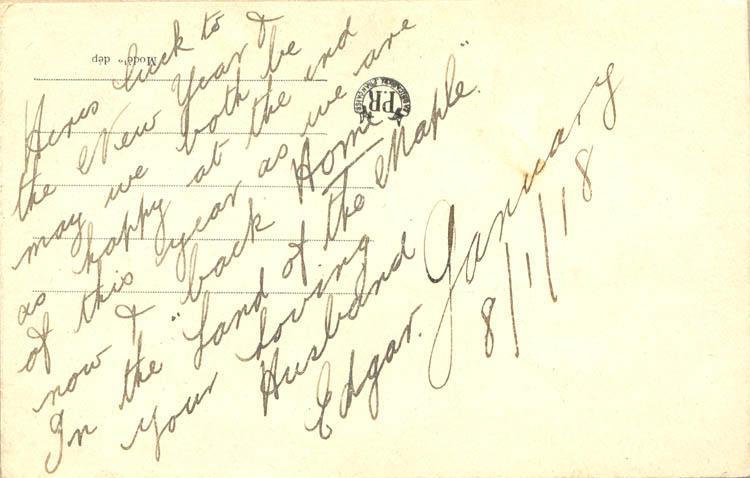 Heres luck to
the New Year &
may we both be
as happy at the end
of this year as we are
now & "back Home
In the Land of the Maple."
your Loving
Husband
Edgar.
January
8/1/18
Modèle dép
PR